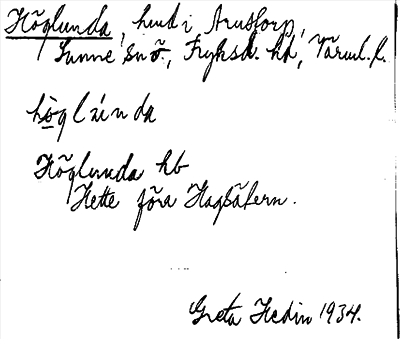 Höglunda, hmd i Arnstorp,
Sunne sn ö., Fryksd. hd, Värml. l.
hög lúnda
Höglunda hb
Hette förr Hagsätern.
Greta Hedin 1934.